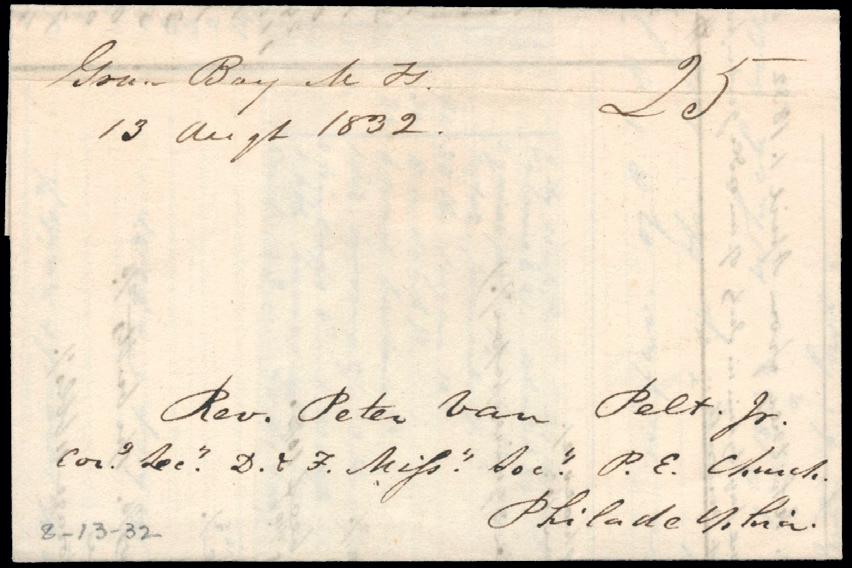 Green Bay M Ty. 25
13 Augt 1832.
Rev. Peter Van Pelt. Jr.
Corg Secy. D. & F. Missy. Socy. P. E. Church.
Philadelphia.
8-13-32